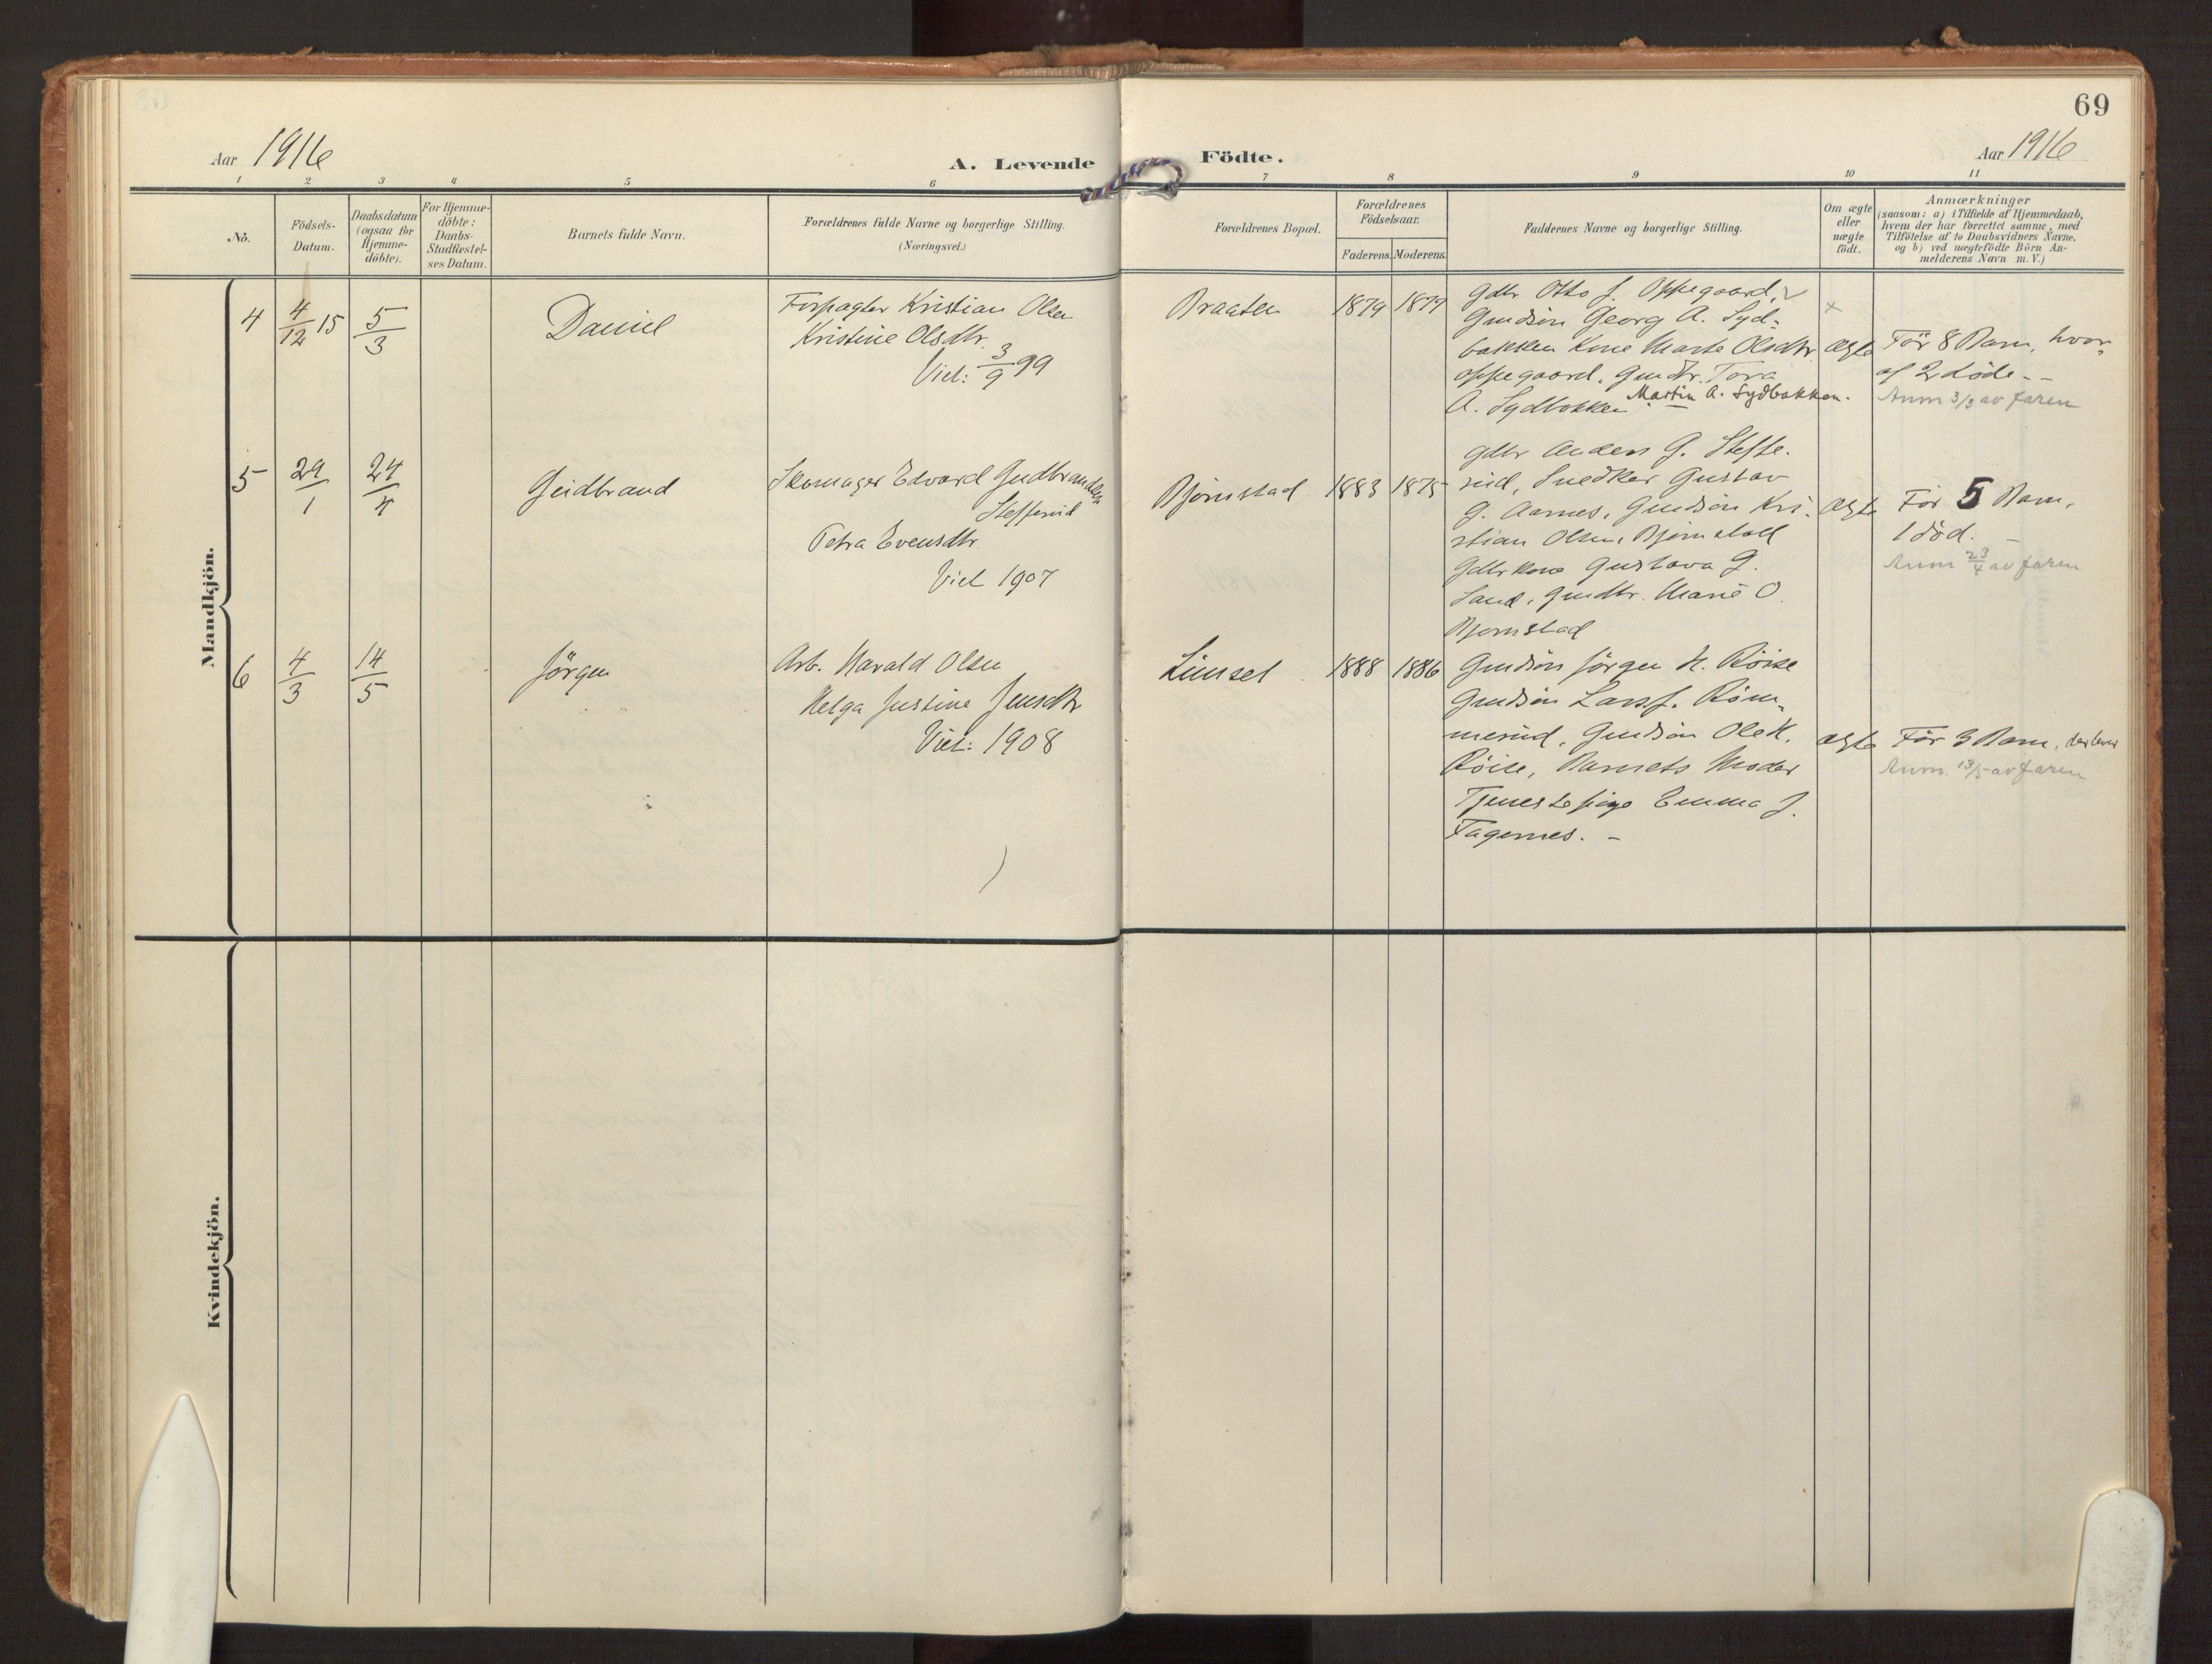 69
Aar 1916
A. Levende Födte.
Aar 1916
1 2 3 4 5 6 7 8 9 10 11
No.
Födsels-
Datum.
Daabsdatum
(ogsaa for
Hjemme-
döbte).
For Hjemme-
döbte:
Daabs-
Stadfæstel-
ses Datum.
Barnets fulde Navn.
Forældrenes fulde Navne og borgerlige Stilling.
(Næringsvei.)
Forældrenes Bopæl.
Forældrenes
Födselsaar.
Faderens. Moderens.
Faddernes Navne og borgerlige Stilling.
Om ægte
eller
uægte
födt.
Anmærkninger
(saasom: a) i Tilfælde af Hjemmedaab,
hvem der har forrettet samme, med
Tilföielse af to Daabsvidners Navne,
og b) ved uægtefödte Börn An-
melderens Navn m. V.)
Mandkjön.
4
4/12 15
5/3
Daniel
Forpagter Kristian Olsen
Kristine Olsdtr.
Viet: 3/9 99
Braaten
1879 1879
Gdbr Otto J. Oppegaard,
Gmdsön Georg A. Syd-
bakken Kone Marte Olsdtr
Oppegaard, Gmdtr. Tora
A. Sydbakken Martin A. Sydbakken.
x
ægte
För 8 Barn, hvor-
af 2 döde - -
Anm 3/3 av faren
5
29/1
24/4
Gudbrand
Skomager Edvard Gudbrandsen
Stefferud
Petra Evensdtr
Viet 1907
Bjørnstad
1883 1875
Gdbr Anders G. Steffe-
rud, Snedker Gustav
G. Aarnes, Gmdsön Kri-
stian Olsen, Bjørnstad
Gdbrkone Gustava G.
Sand, Gmdtr. Marie O.
Bjørnstad
ægte
För 5 Barn,
1 död. -
Anm 23/4 av faren
6
4/3
14/5
Jörgen
Arb. Harald Olsen
Helga Justine Jensdtr
Viet: 1908
Linset
1888 1886
Gmdsön Jörgen H. Röise
Gmdsön Lars J. Röm-
merud, Gmdsön Ole H.
Röise, Barnets Moder
Tjenestepige Emma J.
Fagernes. -
ægte
För 3 Barn, der lever
Anm. 13/5 av faren
Kvindekjön.